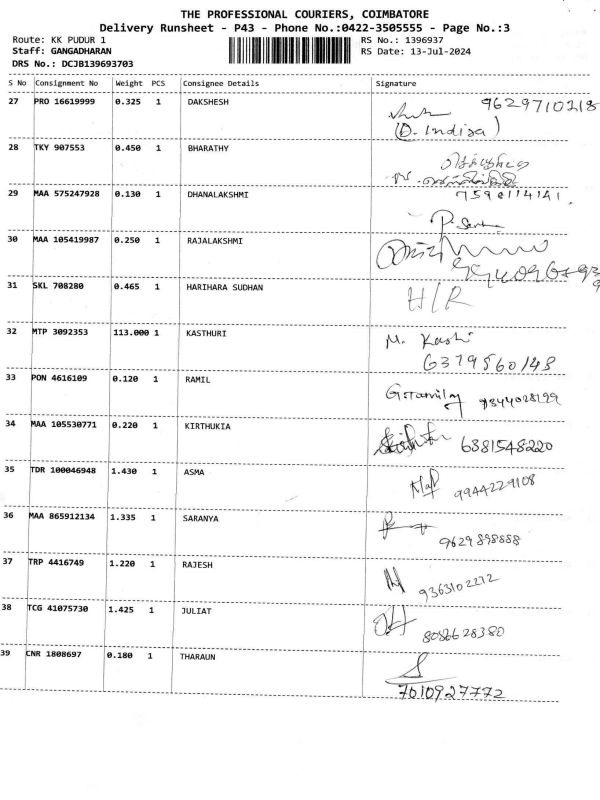 THE PROFESSIONAL COURIERS, COIMBATORE
Delivery Runsheet - P43 - Phone No.:0422-3505555 - Page No.:3
Route: KK PUDUR 1 RS No.: 1396937
Staff: GANGADHARAN RS Date: 13-Jul-2024
DRS No.: DCJB139693703
S No Consignment No Weight PCS Consignee Details Signature
27 PRO 16619999 0.325 1 DAKSHESH 9629710218
(D. Indisa)
28 TKY 907553 0.450 1 BHARATHY
29 MAA 575247928 0.130 1 DHANALAKSHMI
30 MAA 105419987 0.250 1 RAJALAKSHMI
31 SKL 708280 0.465 1 HARIHARA SUDHAN H/R
32 MTP 3092353 113.000 1 KASTHURI M. Kasthi
6379560148
33 PON 4616109 0.120 1 RAMIL 9344028199
34 MAA 105530771 0.220 1 KIRTHUKIA 6381548220
35 TDR 100046948 1.430 1 ASMA 9944229108
36 MAA 865912134 1.335 1 SARANYA
9629898888
37 TRP 4416749 1.220 1 RAJESH
9363102272
38 TCG 41075730 1.425 1 JULIAT
8086628380
39 CNR 1808697 0.180 1 THARAUN
7010927772